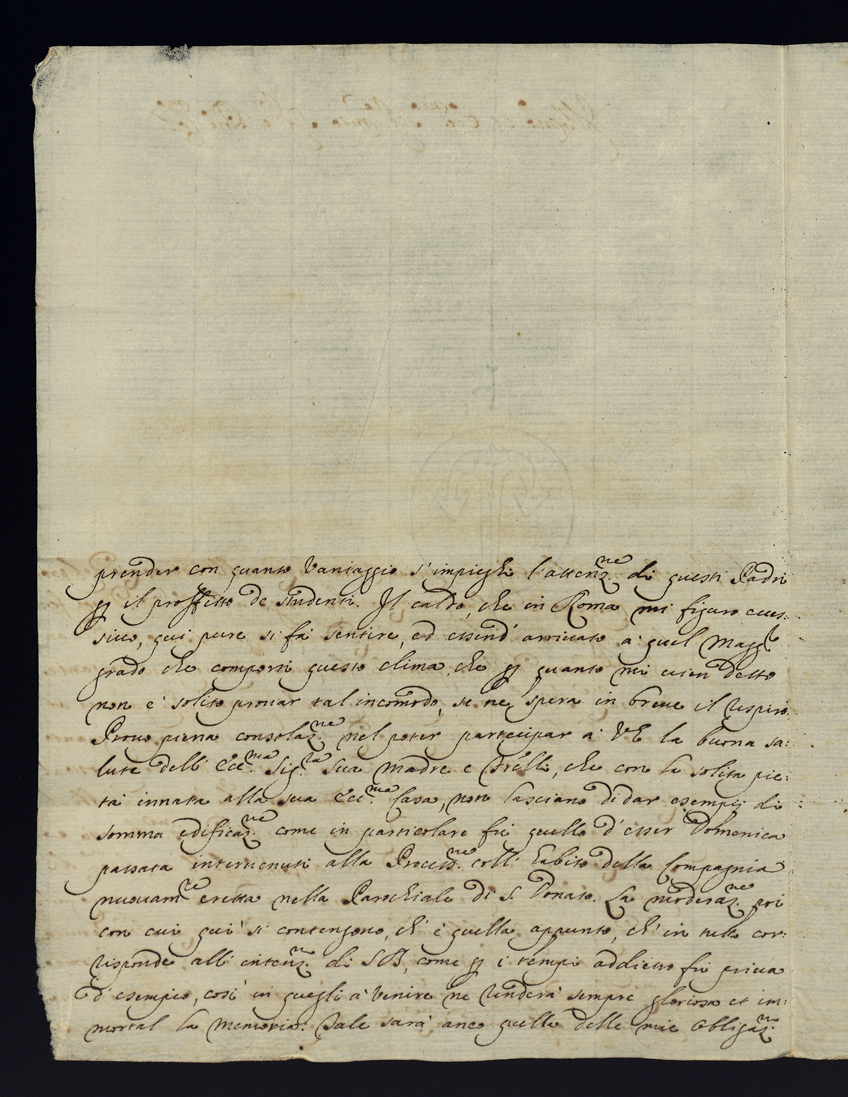 prender con quanto Vantaggio s'impieghi l'attenz.ne di questi Padri
p il proffitto de studenti. Il caldo, che in Roma mi figuro ecces:
sivo, qui pure si fà sentire, ed essend' arrivato a quel magg.
grado che comporti questo clima, che p quanto mi vien detto
non e' solito provar tal incomodo, se ne spera in breve il respiro.
Provo piena consolaz.ne nel poter partecipar a' VE la buona sa:
lute dell' Ecc.ma Sig.ra Sua madre e Frelli, che con la solita pie:
tà innata alla sua Ecc.ma Casa, non lasciano di dar esempij di
somma edificaz.ne come in particolare fù quello d'esser Domenica
passata intervenuti alla Process.ne coll' habito della Compagnia
nuovam.te eretta nella Parochiale di S. Donato. La moderaz.ne poi
con cui qui si contengono, ch' è quella appunto, ch' in tutto cor:
risponde all' intenz.ne di SB, come p i tempi addietro fù priva
d'esempio, così in quegli a' venire ne renderà sempre gloriosa et im:
mortal la memoria. Tale sarà anco quella delle mie obligaz.ni